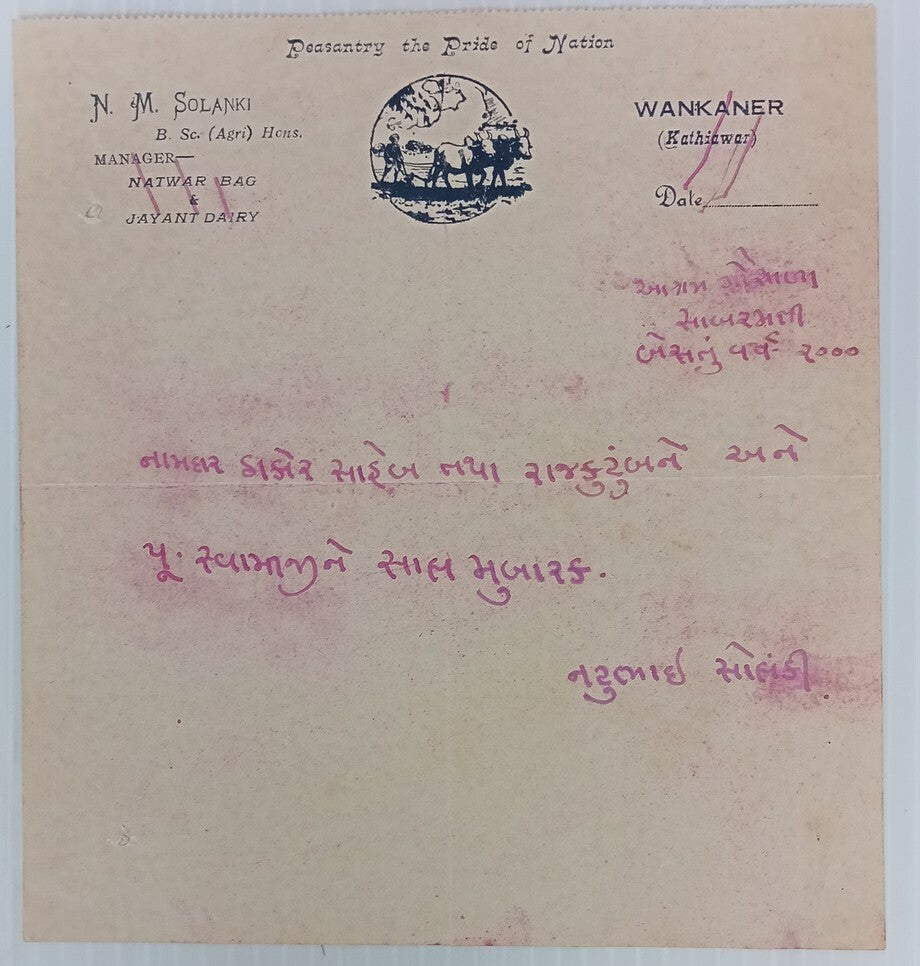 Peasantry the Pride of Nation
N. M. SOLANKI
B. Sc. (Agri) Hons.
MANAGER—
NATWAR BAG
&
JAYANT DAIRY
WANKANER
(Kathiawar)
Date
આશ્રમ ગૌશાળા
સાબરમતી
બેસતું વર્ષ ૨૦૦૦
નામદાર ઠાકોર સાહેબ તથા રાજકુટુંબને અને
પૂ. સ્વામીજીને સાલ મુબારક.
નટુભાઈ સોલંકી.